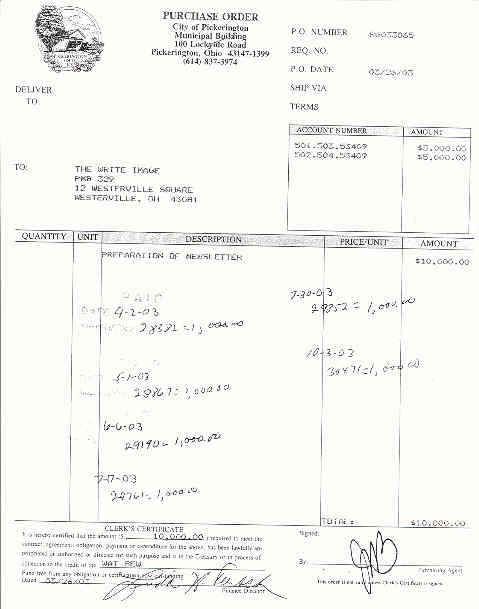 PURCHASE ORDER
City of Pickerington
Municipal Building
100 Lockville Road
Pickerington, Ohio 43147-1399
(614) 837-3974
P.O. NUMBER
REQ. NO.
P.O. DATE 03/26/03
SHIP VIA
TERMS
DELIVER
TO
ACCOUNT NUMBER AMOUNT
501.503.53409 $5,000.00
502.504.53409 $5,000.00
TO:
THE WRITE IMAGE
PMB 329
12 WESTERVILLE SQUARE
WESTERVILLE, OH 43081
QUANTITY UNIT DESCRIPTION PRICE/UNIT AMOUNT
PREPARATION OF NEWSLETTER $10,000.00
PAID
DATE 4-2-03
28382 = 1,000.00
7-30-03
29852 = 1,000.00
5-1-03
28867 = 1,000.00
10-3-03
30471 = 1,000.00
6-6-03
29190 = 1,000.00
7-7-03
= 1,000.00
TOTAL: $10,000.00
CLERK'S CERTIFICATE
It is hereby certified that the amount $ 10,000.00 required to meet the
contract, agreement, obligation, payment or expenditure for the above, has been lawfully ap-
propriated or authorized or directed for such purpose and is in the Treasury or in process of
collection to the credit of the WAT REW
Fund free from any obligation or certification now outstanding
Dated 03/26/03
Finance Director
Signed:
By
Purchasing Agent
This order is not valid unless Clerk's Certificate is signed.